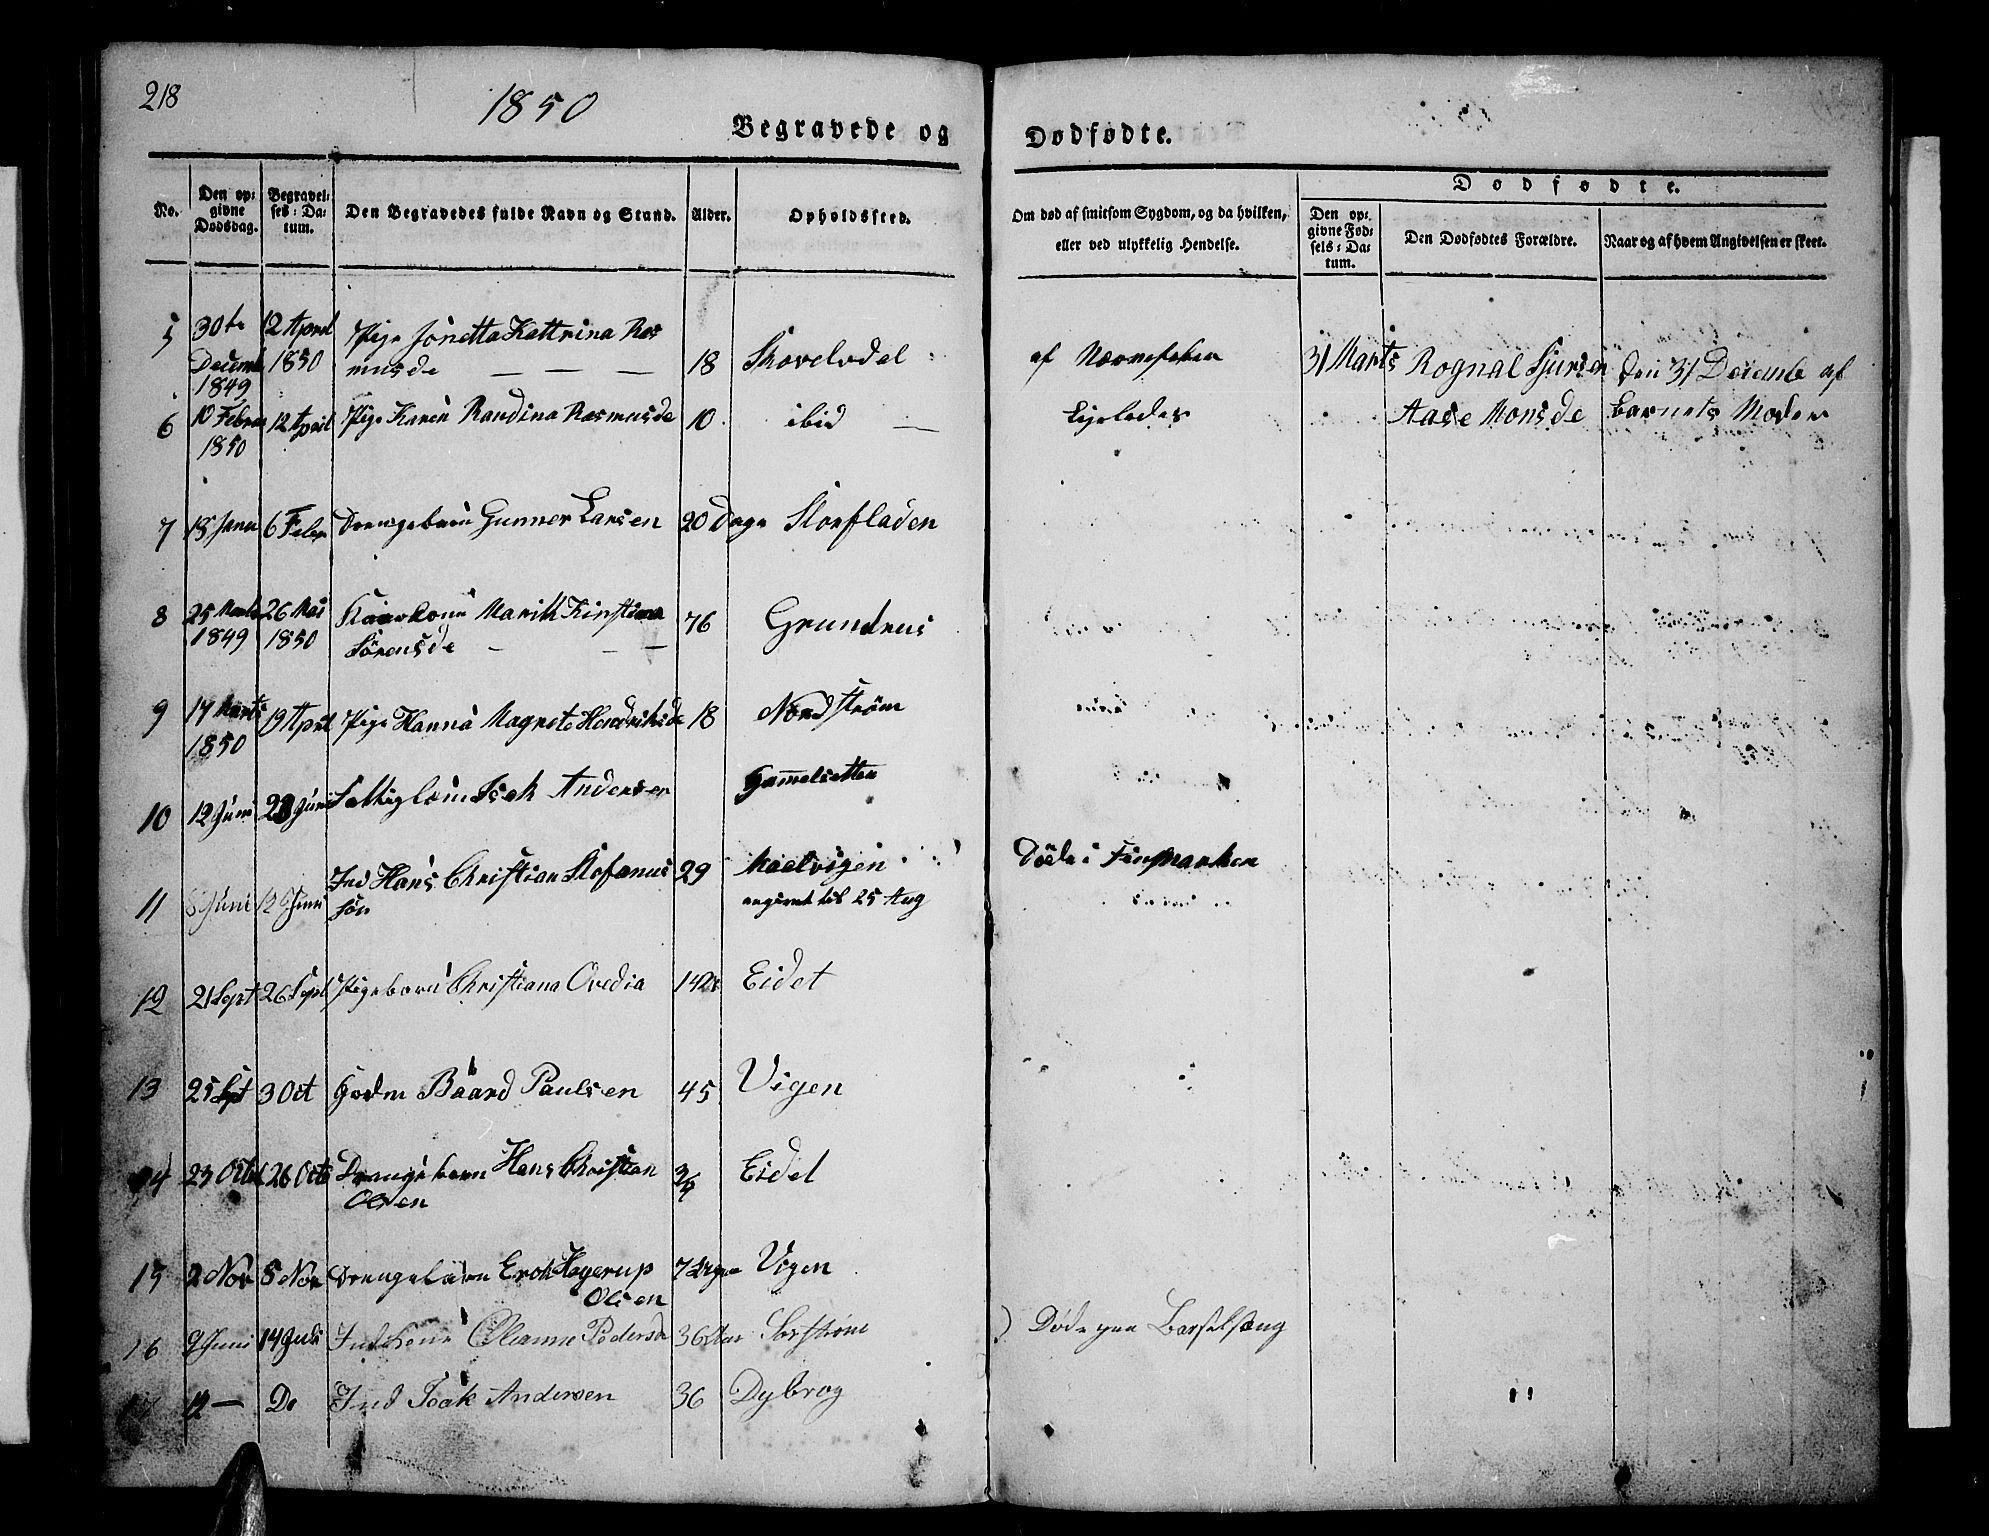 218
1850
Begravede og
Dødfødte.
No.
Den op:
givne
Dødsdag.
Begravel:
ses: Da:
tum.
Den Begravedes fulde Navn og Stand.
Alder.
Opholdssted.
Om død af smitsom Sygdom, og da hvilken,
eller ved ulykkelig Hendelse.
Dødfødte.
Den op:
givne Fød:
sels: Da:
tum.
Den Dødfødtes Forældre.
Naar og af hvem Angivelsen er skeet.
5 30te 12 April Pige Jonetta Kattrina Ras
Decemb 1850 musde — — — 18 Skovelvdal
1849
af 31 Marts Rognal Sjursen den 31 Decemb af
6 10 Februar 12 April Pige Karen Randina Rasmusde 10 ibid —
1850
Aase Monsde Barnets Moder
7 18 Janu 6 Febr Drengebarn Gunner Larsen 20 Dage Storfladen
8 25 26 Mai Marith Kirstina 76 Grundnes
1849 1850 Sørensde — — —
9 17 Marts 19 April Pige Hanna Magrete Hendriksde 18 Nordstrøm
1850
10 12 Juni 28 Juni Isak Andersen
11 8 Juni 12 Juni Ind Hans Christian Stofanus 29
søn angivet til 25 Aug
Døde i Finmarken
12 21 Sept 26 Sept Pigebarn Christiana Ovedia 14 Eidet
13 25 Sept 3 Oct Baard Paulsen 45 Vigen
14 23 Octb 26 Octb Drengebarn Hans Christian 3/4 Eidet
Olsen
15 2 Nov 8 Nov Drengebarn Erik Hagerup 7 Vigen
Olsen
16 9 Juni 14 Juli Oleanne Pedersd 36 Aar Sørstrøm
Døde paa Barselsæng
17 12 — Do Ind Isak Andersen 36 Dybvog